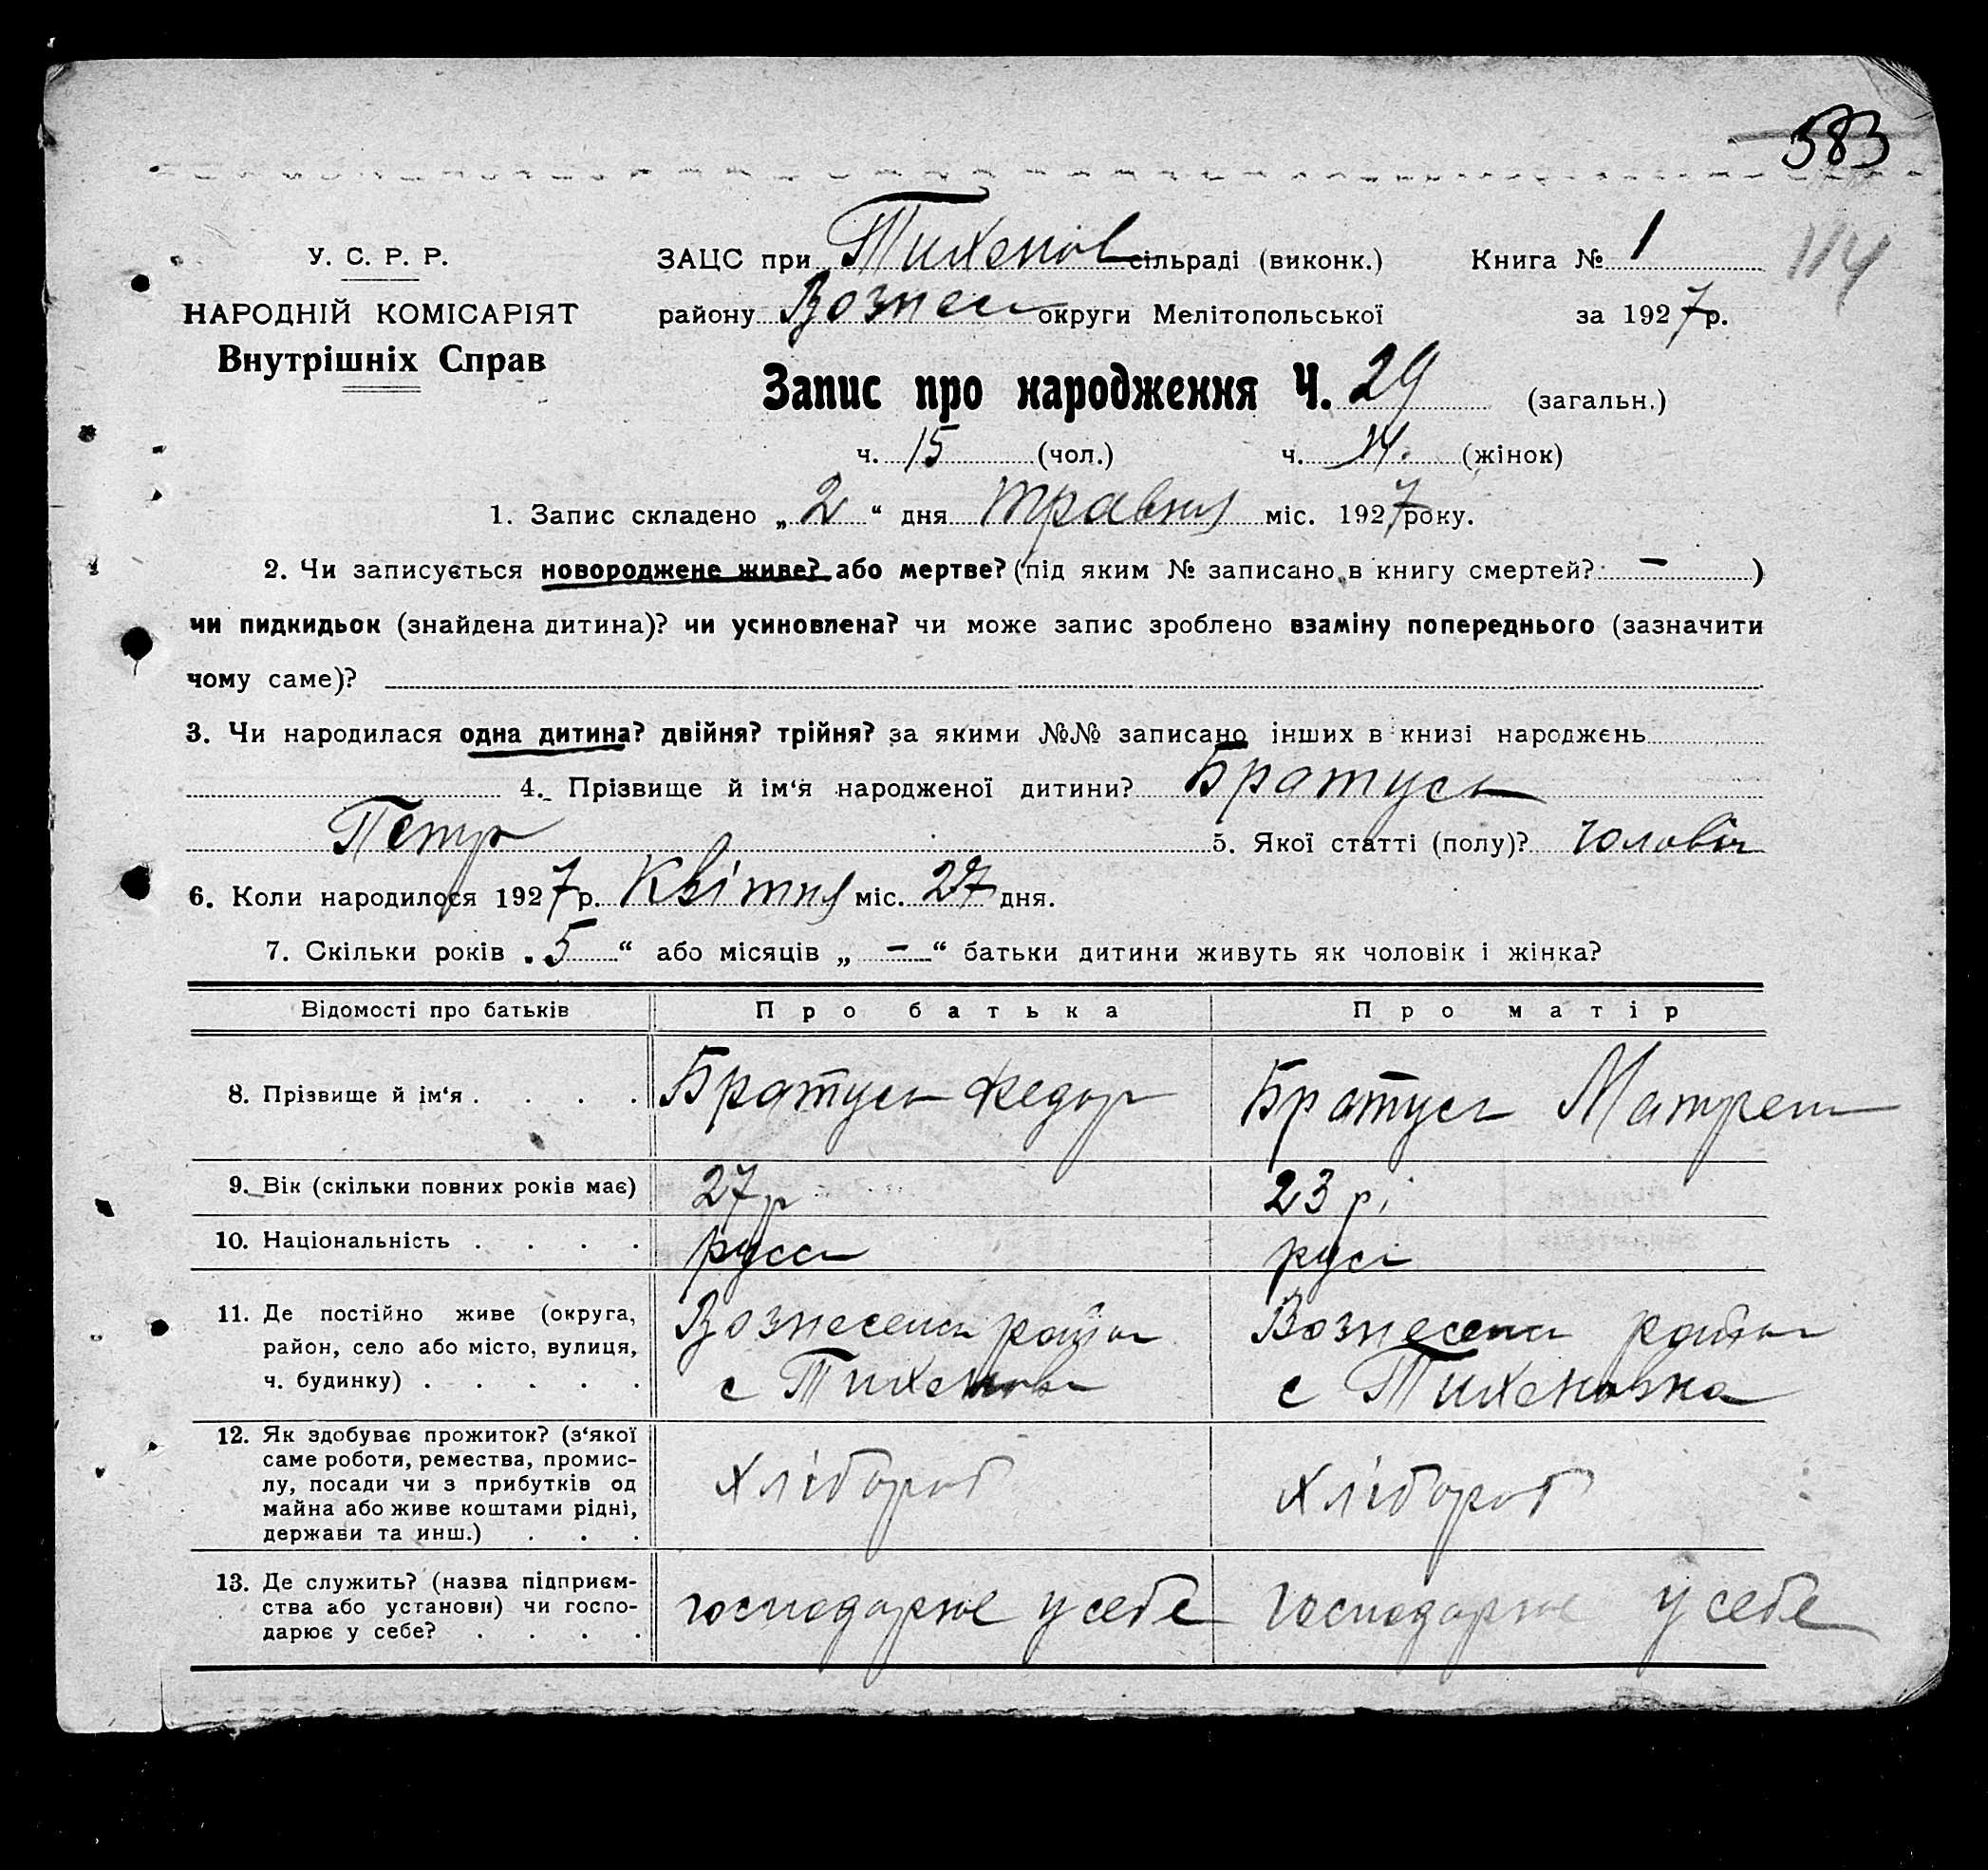 583
114
У. С. Р. Р.
НАРОДНІЙ КОМІСАРІЯТ
Внутрішніх Справ
ЗАЦС при Тихенов сільраді (виконк.) Книга № 1
району Вознес округи Мелітопольської за 1927 р.
Запис про народження Ч. 29 (загальн.)
ч. 15 (чол.) ч. 14. (жінок)
1. Запис складено „ 2 “ дня травня міс. 1927 року.
2. Чи записується новороджене живе? або мертве? (під яким № записано в книгу смертей? — )
чи пидкидьок (знайдена дитина)? чи усиновлена? чи може запис зроблено взаміну попереднього (зазначити
чому саме)?
3. Чи народилася одна дитина? двійня? трійня? за якими №№ записано інших в книзі народжень
4. Прізвище й ім‘я народженої дитини? Братусь
Петр 5. Якої статті (полу)? чоловіч
6. Коли народилося 1927 р. Квітня міс. 27 дня.
7. Скільки років „ 5 “ або місяців „ — “ батьки дитини живуть як чоловік і жінка?
Відомості про батьків Про батька Про матір
8. Прізвище й ім‘я . . . . Братусь Федор Братусь Матрен
9. Вік (скільки повних років має) 27 р 23 р.
10. Національність . . . . русск русс
11. Де постійно живе (округа,
район, село або місто, вулиця,
ч. будинку) . . . . .
Вознесенск район
с Тихеновк
Вознесенск район
с Тихеновка
12. Як здобуває прожиток? (з‘якої
саме роботи, ремества, промис-
лу, посади чи з прибутків од
майна або живе коштами рідні,
держави та инш.) . . .
хлібороб хлібороб
13. Де служить? (назва підприєм-
ства або установи) чи госпо-
дарює у себе? . . . .
господарює у себе господарює у себе